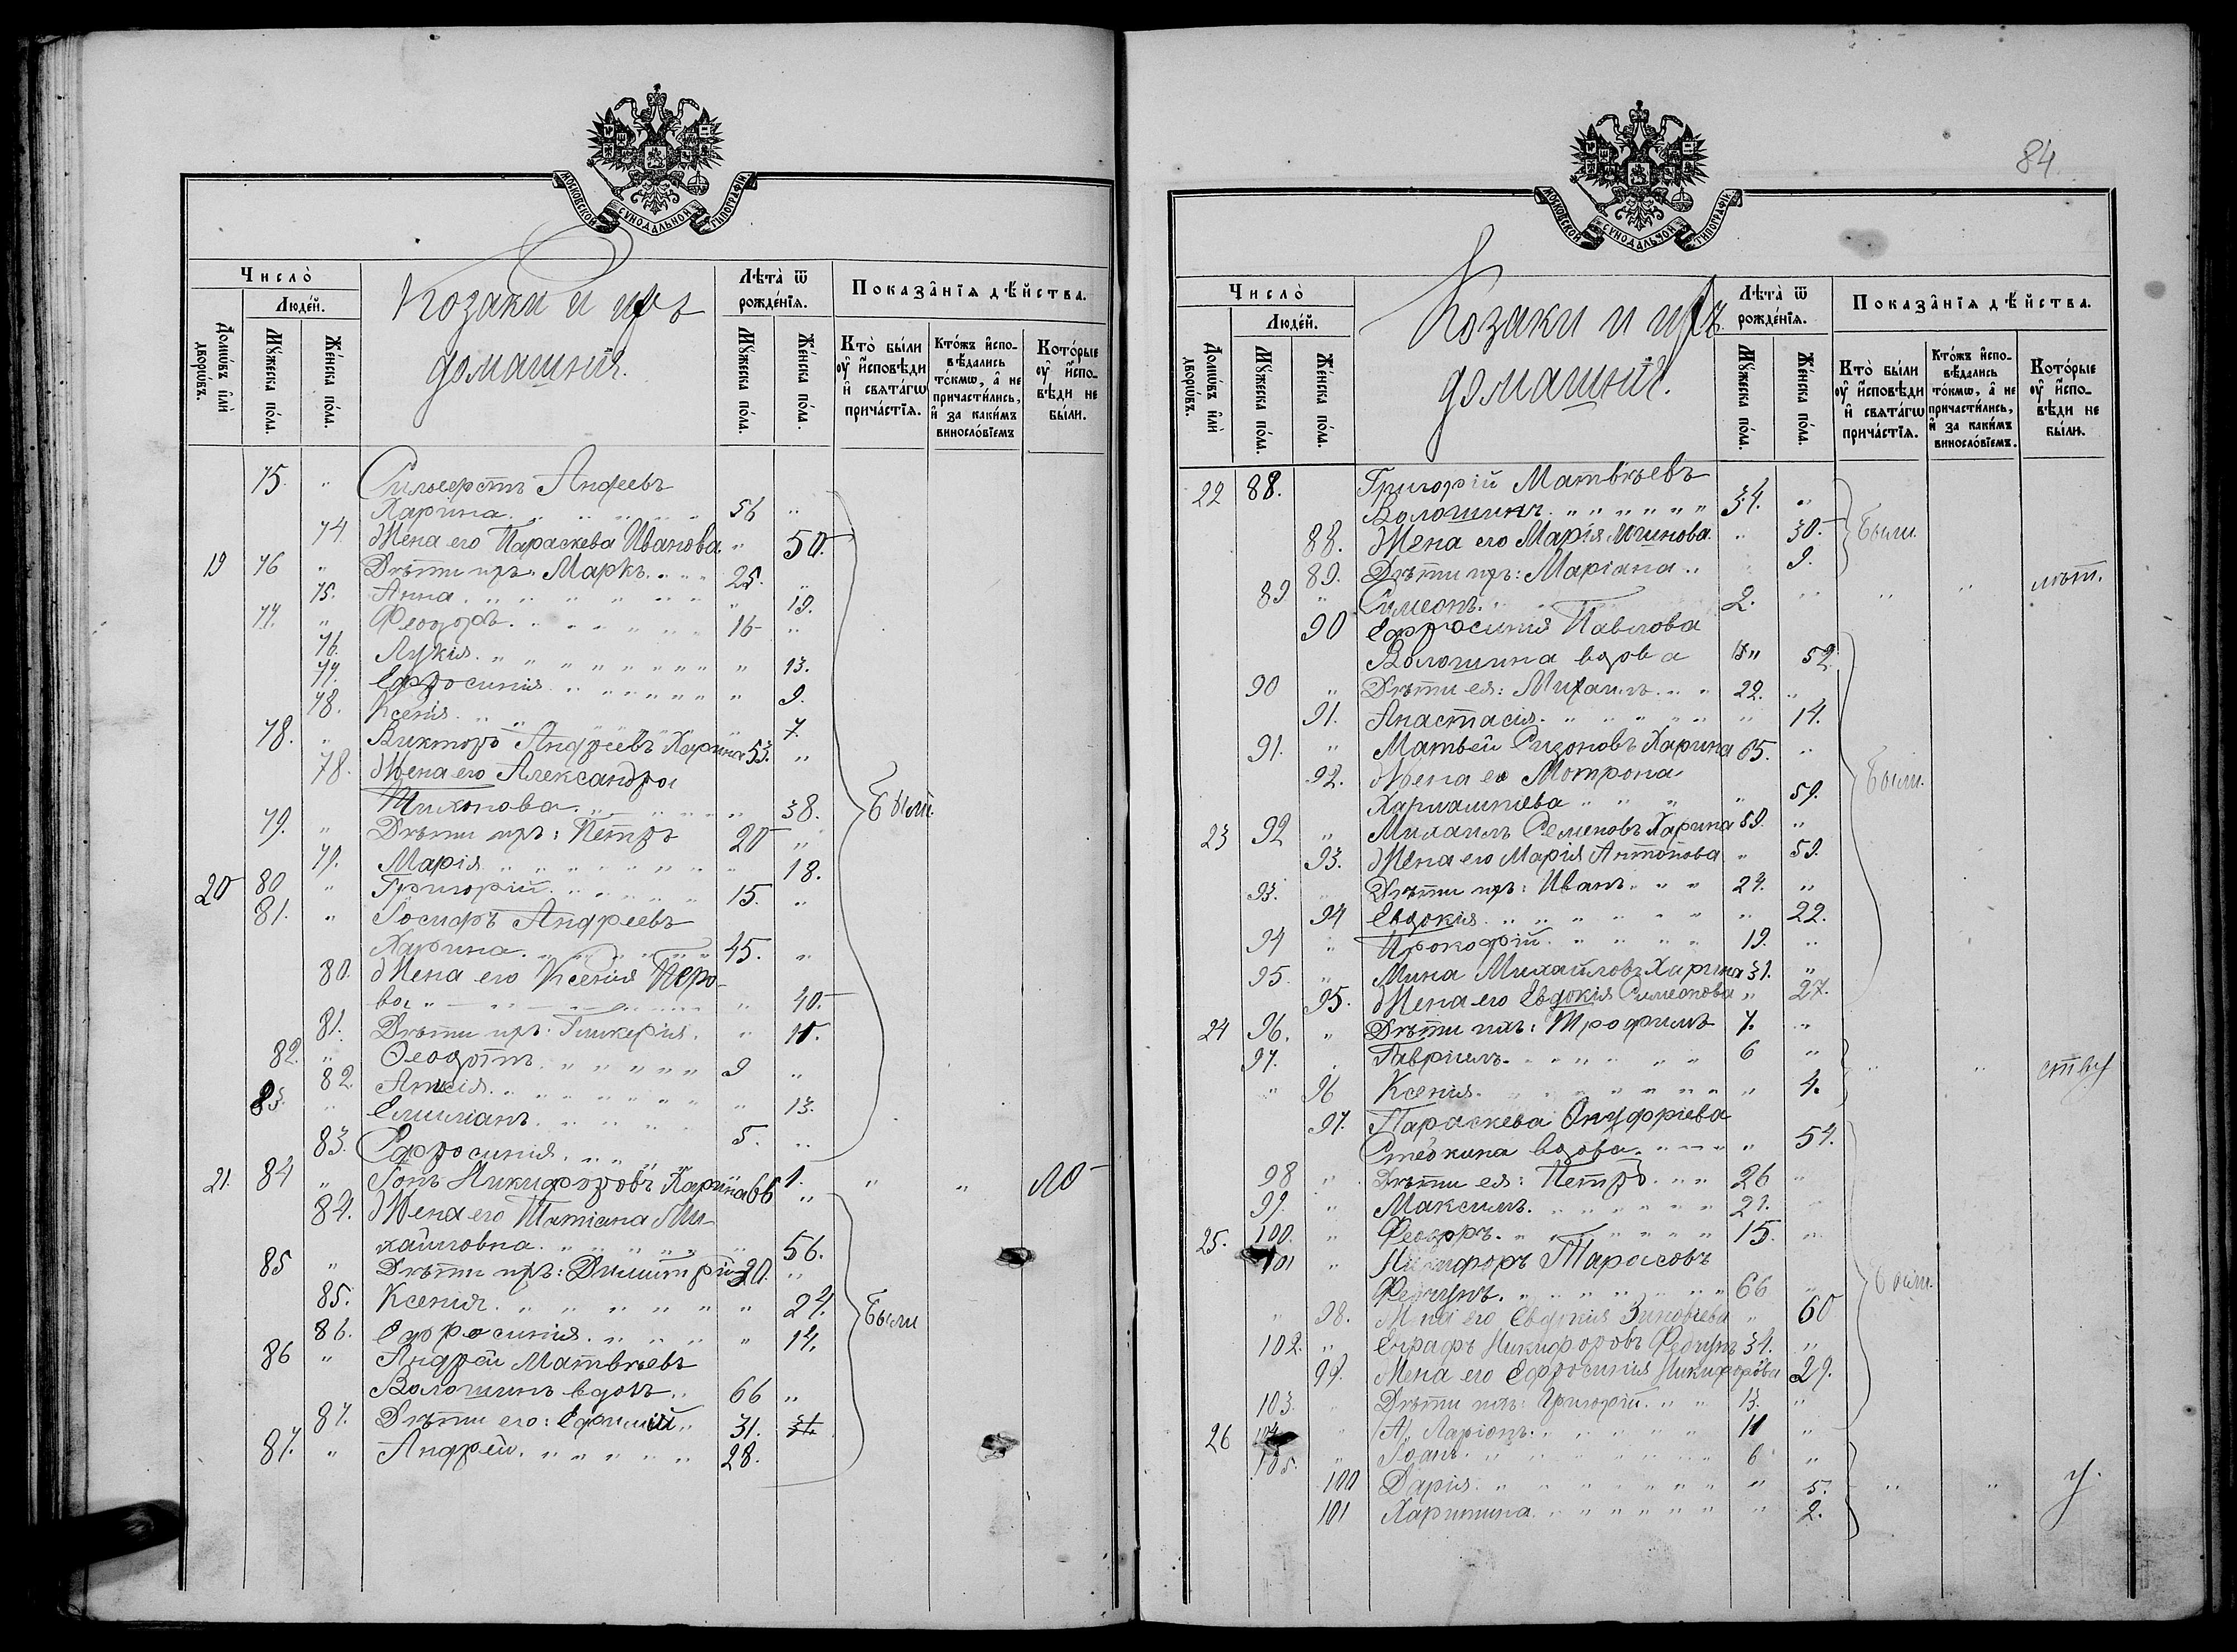 МОСКОВСКОЙ СѴНОДАЛЬНОЙ ТИПОГРАФІИ
Число̀
Людéй.
Домѡ́въ и҆лѝ дворѡ́въ.
Мꙋ́жеска пóла.
Жéнска пóла.
Козаки и ихъ
домашнія.
Лѣта̀ ѿ рождéнїѧ.
Мꙋ́жеска пóла.
Жéнска пóла.
Показáнїѧ дѣ́йства.
Кто̀ бы́ли ᲂу҆ и҆сповѣди и҆ свѧтáгѡ причáстїѧ.
Кто́жъ и҆спо-вѣ́дались то́кмѡ, а҆ не причасти́лись, и҆ за каки́мъ винослóвїемъ
Котóрые ᲂу҆ и҆спо-вѣди не бы́ли.
75. " Сильверстъ Андреевъ
Харина 56 "
74. Жена его Параскева Иванова " 50.
19 76 " Дѣти ихъ Маркъ 25. "
75. Анна " 19.
77. " Феодоръ 16 "
76. Лукія " 13.
77. Ефросинія " 9.
78. Ксенія " 7.
78. " Викторъ Андреевъ Харина 53. "
78. Жена его Александра
Тихонова " 38.
79. " Дѣти ихъ: Петръ 20 "
79. Марія " 18.
20 80 " Григорій 15. "
81. " Іосифъ Андреевъ
Харина 45. "
80. Жена его Ксенія Перо-
ва " 40.
81. Дѣти ихъ: Гликерія "
82. " Феодотъ 9 "
82. " 13.
83. " Емиліанъ 5. "
83. Ефросинія 1.
21. 84 " Никифоровъ Харина 66 "
84. Жена его Татіана Ми-
хайловна " 56.
85 " Дѣти ихъ: Димитрій 20. "
85. Ксенія " 24.
86. Ефросинія " 14.
86 " Андрей Матвѣевъ
Волошинъ вдовъ 66 "
87. Дѣти его: Ефимій 31.
87. " Андрей 28.
Были.
" " ло
Были
84
МОСКОВСКОЙ СѴНОДАЛЬНОЙ ТИПОГРАФІИ
Число̀
Людéй.
Домѡ́въ и҆лѝ дворѡ́въ.
Мꙋ́жеска пóла.
Жéнска пóла.
Козаки и ихъ
домашнія.
Лѣта̀ ѿ рождéнїѧ.
Мꙋ́жеска пóла.
Жéнска пóла.
Показáнїѧ дѣ́йства.
Кто̀ бы́ли ᲂу҆ и҆сповѣди и҆ свѧтáгѡ причáстїѧ.
Кто́жъ и҆спо-вѣ́дались то́кмѡ, а҆ не причасти́лись, и҆ за каки́мъ винослóвїемъ.
Котóрые ᲂу҆ и҆спо-вѣди не бы́ли.
22 88. Григорій Матвѣевъ
Волошинъ 34. "
88. Жена его Марія " 30.
89. Дѣти ихъ: Маріана 9.
89 " Симеонъ 2. " " " лѣт.
90 Ефросинія Павлова
Волошина вдова " 52
90 " Дѣти ея: Михаилъ 22. "
91. Анастасія " 14.
91. " Матвей Харина 65. "
92. Жена его Мотрона
" 59.
23 92 " Михаилъ Семеновъ Харина 59. "
93. Жена его Марія Антонова " 59.
93. Дѣти ихъ: Иванъ 24. "
94 Евдокія " 22.
94 " Прокофій 19. "
95. " Мина Михайловъ Харина 31. "
95. Жена его Евдокія Симеонова " 27.
24 96. " Дѣти ихъ: Трофимъ 7. "
97. Гавріилъ 6 "
" 96 Ксенія " 4.
97. Параскева Онуфріева
вдова " 54.
98 " Дѣти ея: Петръ 26 "
99. " Максимъ 21. "
25. 100. " Феодоръ 15. "
101 " Никифоръ Тарасовъ
Федчунъ 66 "
" 98. Жена его Евдокія Зиновіева " 60
102. " Никифоровъ Федчунъ 31. "
99. Жена его Ефросинія Никифорова 29.
103. Дѣти ихъ: Григорій 13. "
26 104 Ларіонъ 11 "
105. Іоанъ 6 "
100 Дарія " 5.
101 Харитина " 2.
Были.
Были.
" " ству
Были.
" " у.